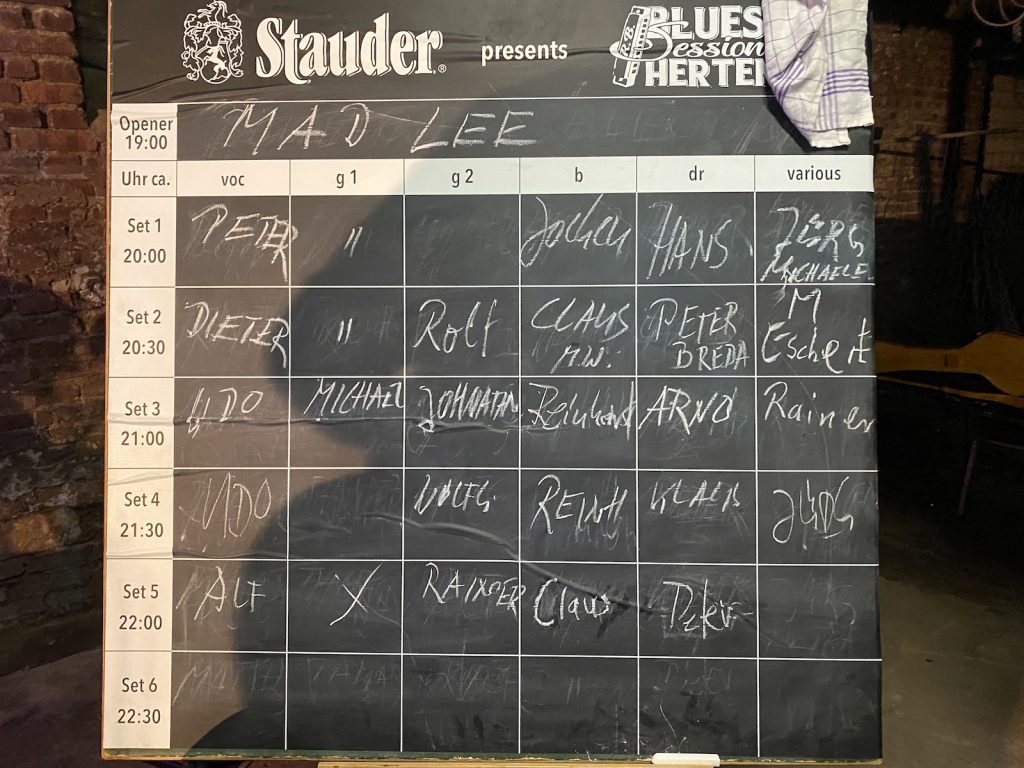 Stauder® presents BLUES Session HERTE
Opener 19:00 MAD LEE
Uhr ca. voc g 1 g 2 b dr various
Set 1 20:00 PETER " Jochen HANS JÖRG
MICHAELE
Set 2 20:30 DIETER " Rolf CLAUS PETER M
M.W. BREDA
Set 3 21:00 UDO MICHAEL JOHNATAN Reinhard ARNO Rainer
Set 4 21:30 UDO WOLFG REINH KLAUS JÜRG
Set 5 22:00 RALF X RAINER Claus Peter
Set 6 22:30